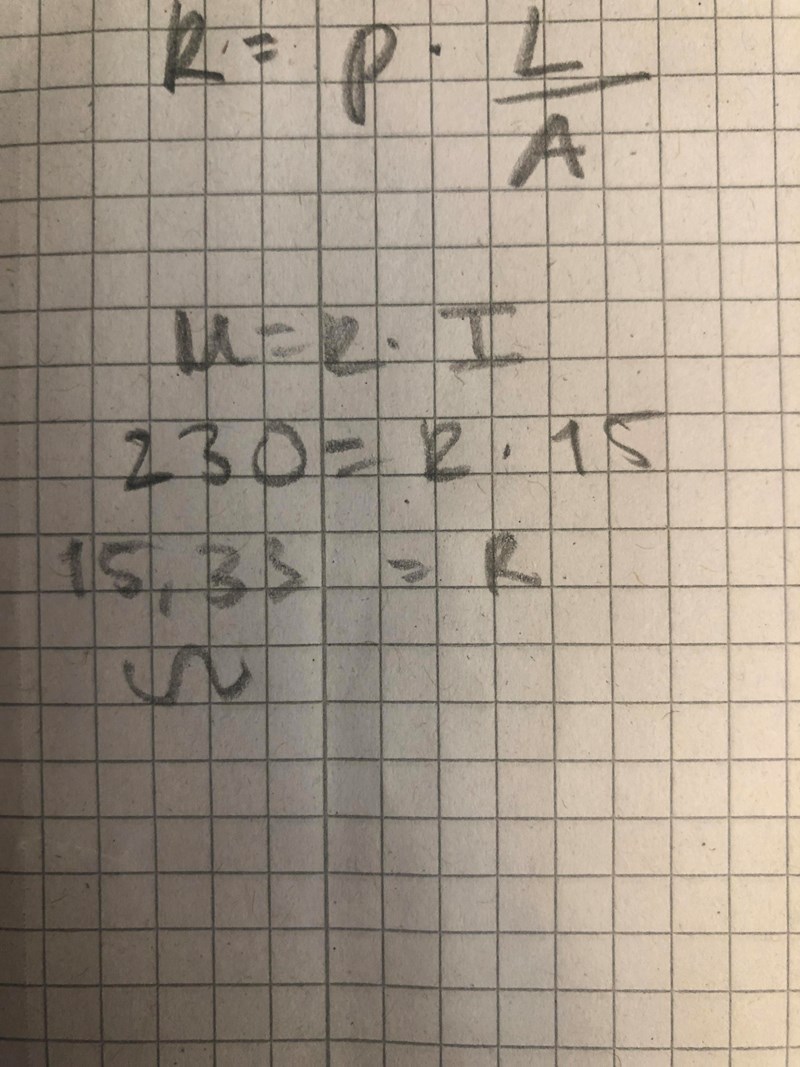 R = ρ · L/A
U = R · I
230 = R · 15
15,33 = R
Ω